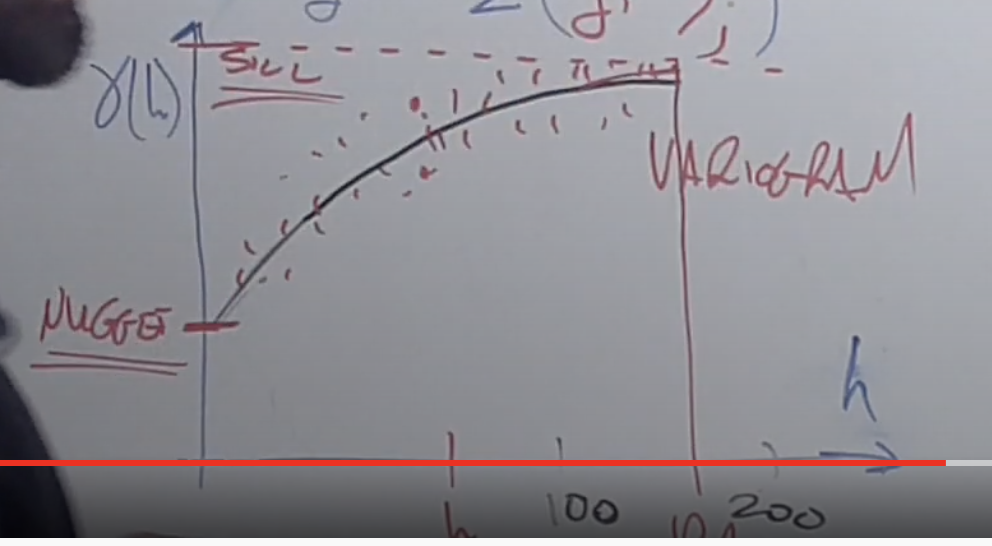 γ(h)
SILL
VARIOGRAM
NUGGET
h
h
100
200